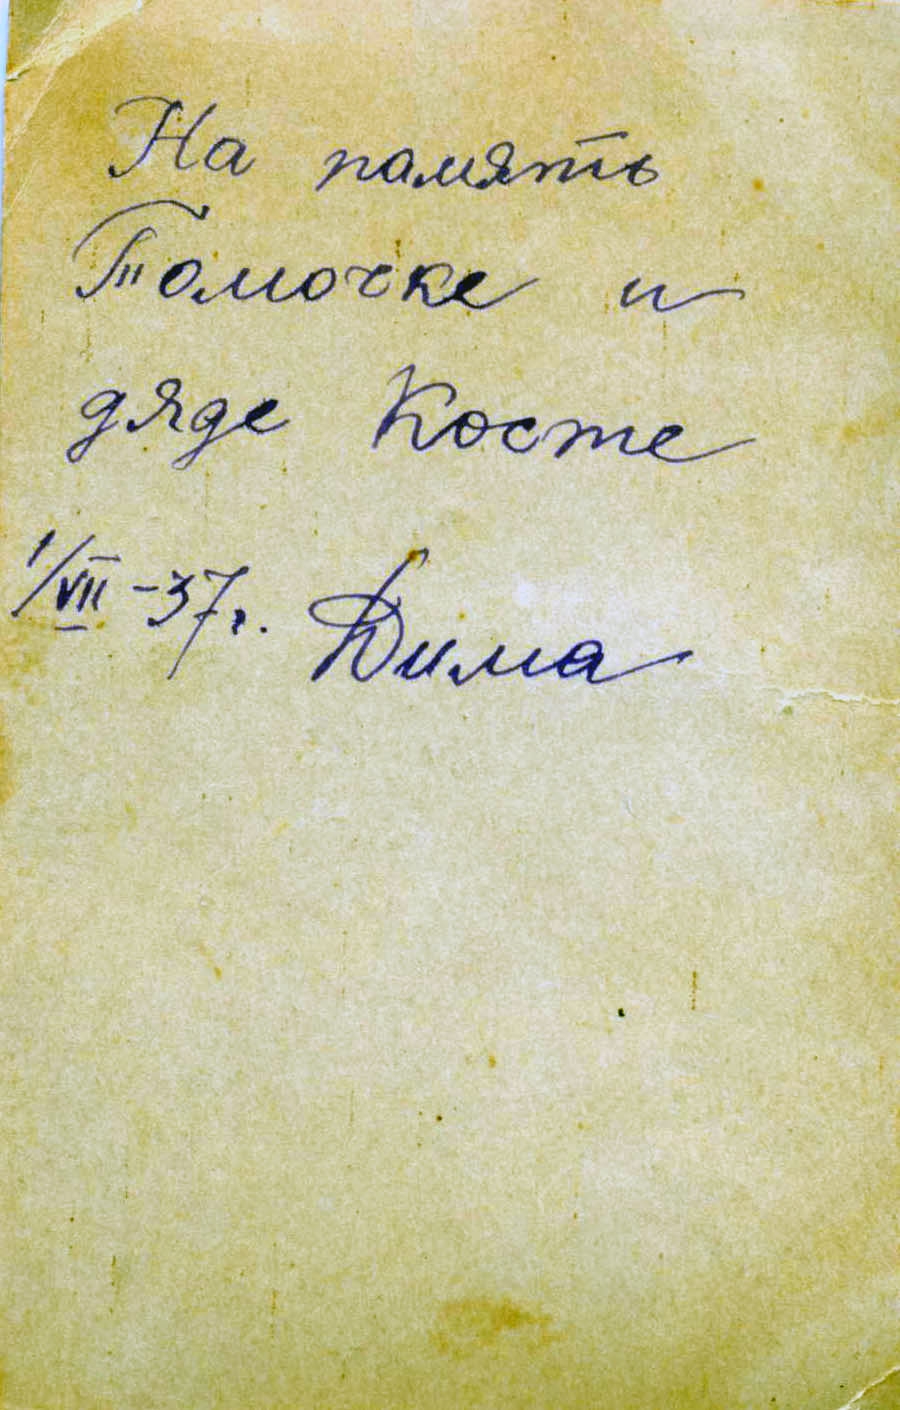 На память
Томочке и
дяде Косте
1/VII -37г. Дима